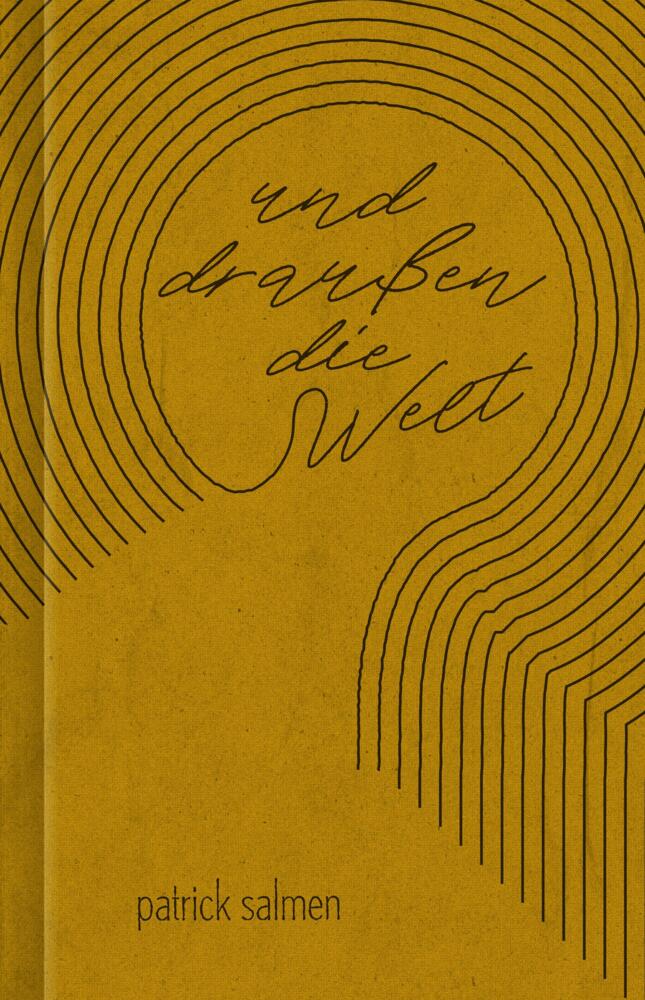 und
draußen
die
Welt
patrick salmen